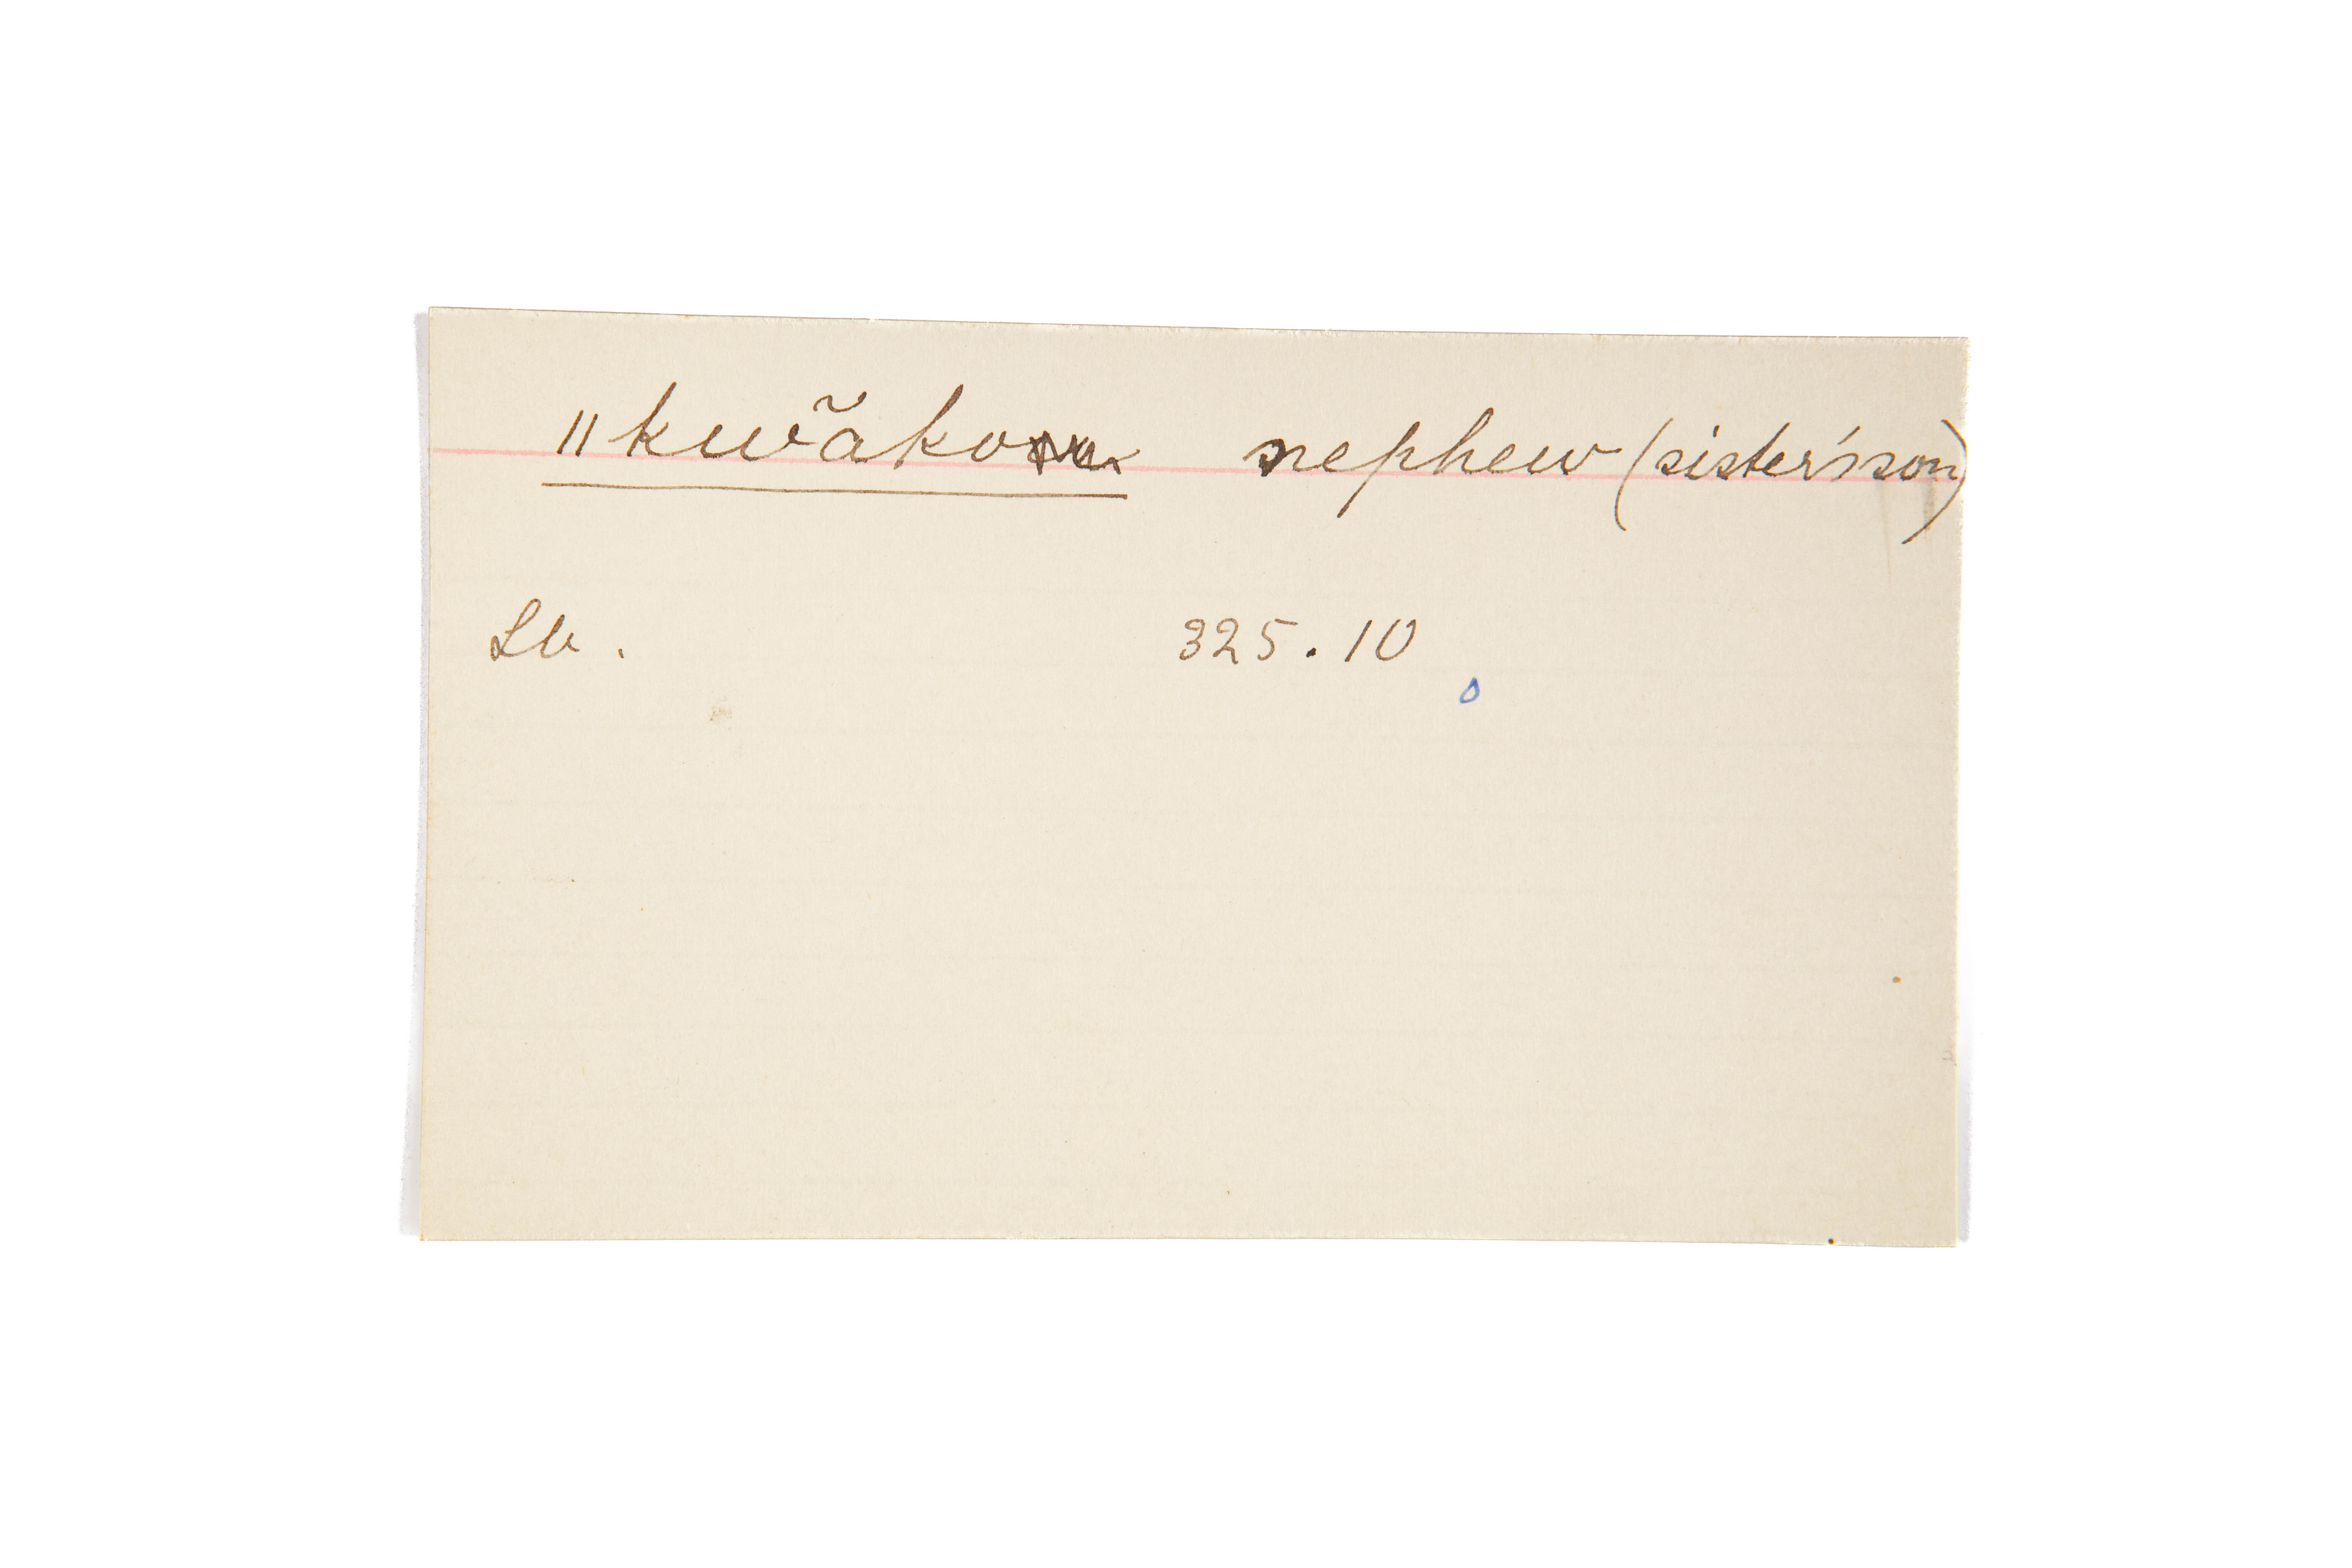 ‖kwãko nephew (sister's son)
Lb. 325.10